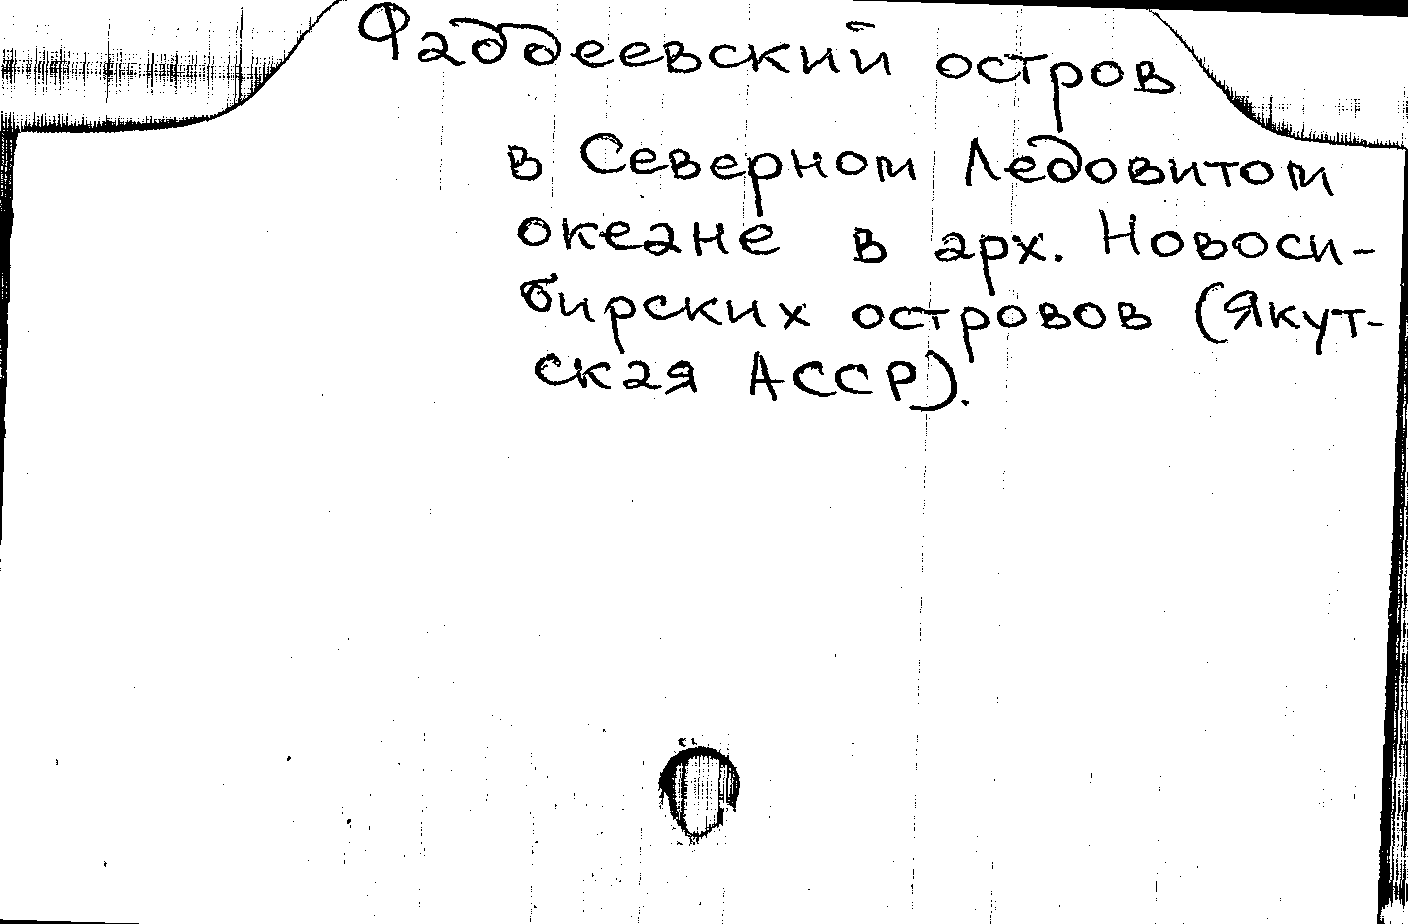 Фаддеевский остров
в Северном Ледовитом
океане в арх. Новоси-
бирских островов (Якут-
ская АССР).